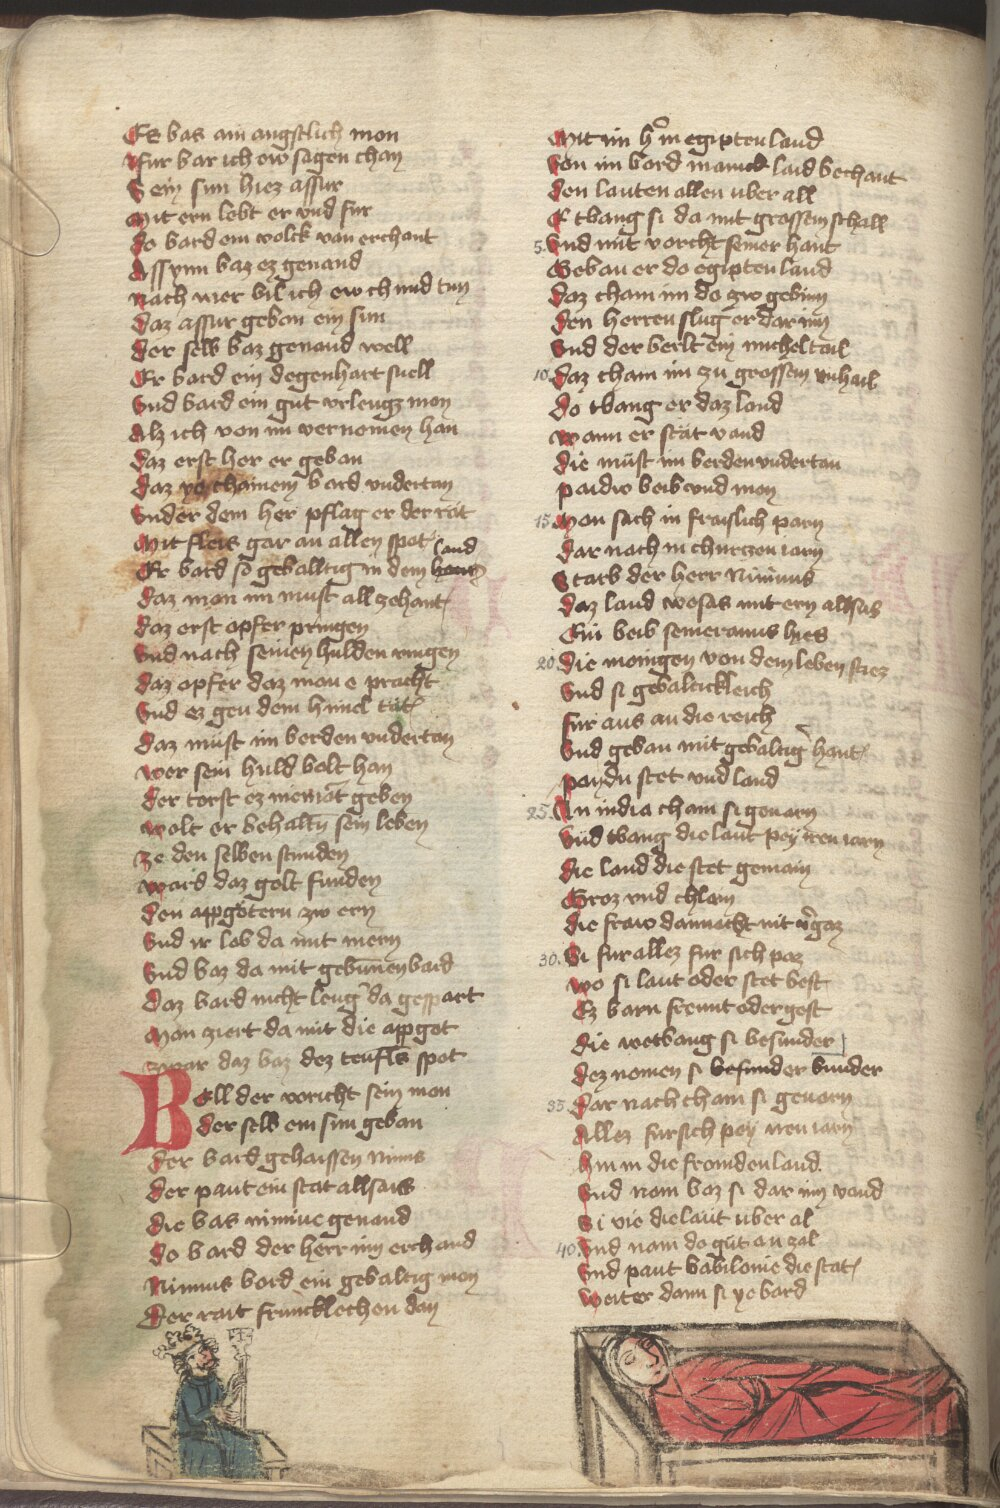 Es bas ain angstlich mon
fur bar ich ew sagen chan
Sein sun hiez assur
Mit ern lebt er vnd fur
do bard em volck van erchant
Assyrin baz ez genand
Nach mer bil ich ew chund tun
daz assur geban ein sun
der selb baz genand well
Er bard ein degenhart snell
Vnd bard ein gut vrleugz mon
Alz ich von im vernomen han
daz erst her er geban
daz chainem bard vndertan
Vnder dem her pflag er der rat
Mit fleis gar an allen spot
land
Er bard so geballtig in dem
daz man im must all zehant
daz erst opfer pringen
Vnd nach seinen hulden ringen
daz opfer daz man e pracht
Vnd ez gen dem himel tät
daz müst im berden vndertan
wer sein huld bolt han
der torst ez niemät geben
wolt er behaltn sein leben
ze den selben stunden
ward daz golt funden
den appgötern zw ern
Vnd ir lob da mit mern
Vnd baz da mit gebunnen bard
daz bard nicht leng da gespart
Man ziert da mit die appgot
zwar daz baz dez teufls spot
Bell der voricht sein mon
der selb ein sun geban
der bard gehaissen ninus
der paut ein stat allsaus
die bas niniue genand
do bard der herr inn erchand
Ninnus bord ein gebaltig mon
der rait frumcklechen dan
Mit im in egipten land
Von im bord manick laid bechant
den lauten allen uber all
Er tbang si da mit grossem schall
5. Vnd mit vorcht seiner hant
Geban er do egipten land
daz cham im do zw gebinn
den herren slug er dar inn
Vnd der berlt ein michel tail
10. daz cham im zu grossem vnhail
do tbang er daz land
wann er stät vand
die müst im berden vndertan
paidw beib vnd mon
15. Mon sach in fraislich parn
dar nach in churczen iarn
Starb der herr Ninnus
daz land wesas mit ern allsus
Ein beib semeramis hies
20. die mangen von dem leben stiez
Vnd si gebaltickleich
fur aus an die reich
Vnd geban mit gebaltig hant
paydu stet vnd land
25. An india cham si geuarn
Vnd tbang die laut pey iren iarn
die land die stet gemain
Groz vnd chlain
die fraw dannacht nit
30. Si fur allez fur sich paz
wo si laut oder stet best
Ez barn freunt oder gest
die wetbang si besunder
dez nomen si besunder bunder
35. dar nach cham si geuarn
Allez fursich pey iren iarn
hin in die fromden land
Vnd nam baz si dar inn vand
Si vie die laut uber al
40. Vnd nam do gut an zal
Vnd paut babilonie die stat
weiter dann si ye bard